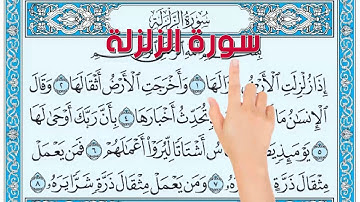 سُورَةُ الزَّلْزَلَةِ
سورة الزلزلة
إِذَا زُلْزِلَتِ الْأَرْضُ ١ وَأَخْرَجَتِ الْأَرْضُ أَثْقَالَهَا ٢ وَقَالَ
الْإِنسَانُ تُحَدِّثُ أَخْبَارَهَا ٤ بِأَنَّ رَبَّكَ أَوْحَىٰ لَهَا
٥ يَوْمَئِذٍ أَشْتَاتًا لِّيُرَوْا أَعْمَالَهُمْ ٦ فَمَن يَعْمَلْ
مِثْقَالَ ذَرَّةٍ ٧ وَمَن يَعْمَلْ مِثْقَالَ ذَرَّةٍ شَرًّا يَرَهُ ٨